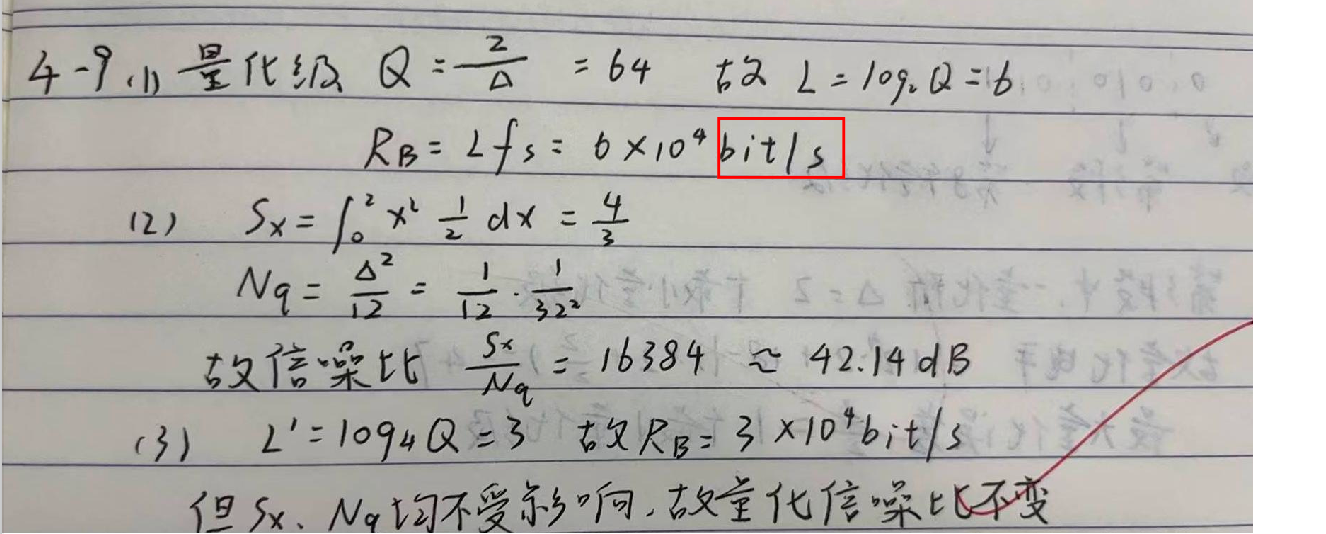 4-9.(1) 量化级 Q = 2/Δ = 64 故 L = log₂Q = 6
R_B = Lfs = 6×10⁴ bit/s
(2) Sx = ∫₀² x² 1/2 dx = 4/3
Nq = Δ²/12 = 1/12 · 1/32²
故信噪比 Sx/Nq = 16384 ≈ 42.14dB
(3) L' = log₄Q = 3 故 R_B = 3×10⁴ bit/s
但 Sx、Nq均不受影响,故量化信噪比不变